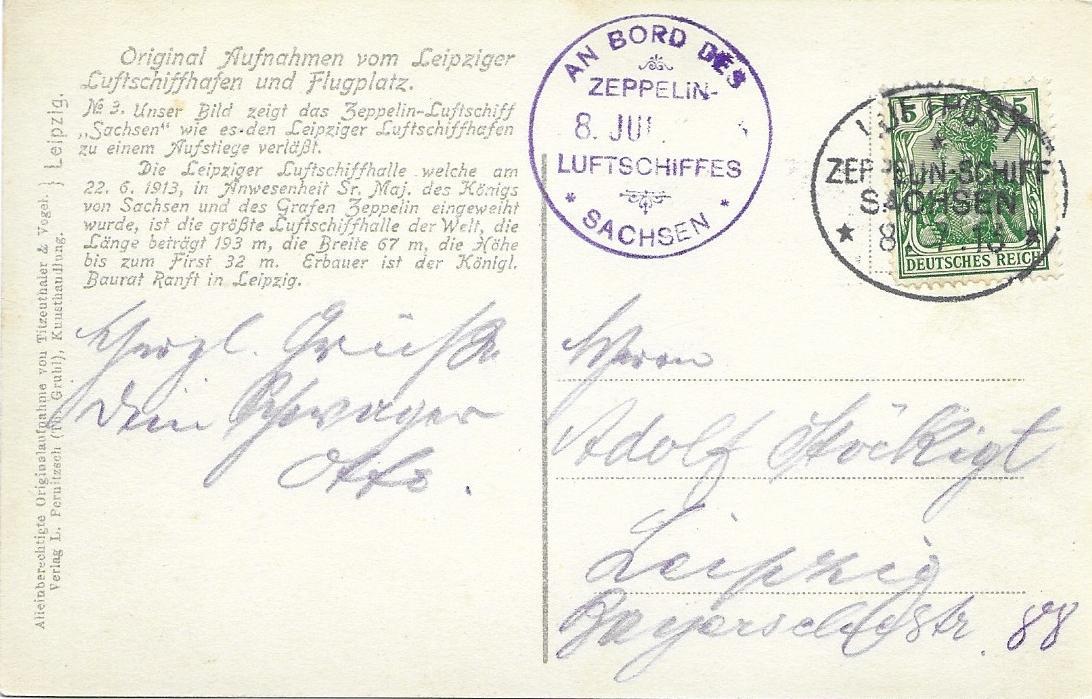 Original Aufnahmen vom Leipziger
Luftschiffhafen und Flugplatz.
№ 3. Unser Bild zeigt das Zeppelin-Luftschiff
„Sachsen" wie es den Leipziger Luftschiffhafen
zu einem Aufstiege verläßt.
Die Leipziger Luftschiffhalle welche am
22. 6. 1913, in Anwesenheit Sr. Maj. des Königs
von Sachsen und des Grafen Zeppelin eingeweiht
wurde, ist die größte Luftschiffhalle der Welt, die
Länge beträgt 193 m, die Breite 67 m, die Höhe
bis zum First 32 m. Erbauer ist der Königl.
Baurat Ranft in Leipzig.
Alleinberechtigte Originalaufnahme von Titzenthaler & Vogel.
Verlag L. Pernitzsch (Th. Gruhl), Kunsthandlung.
} Leipzig.
AN BORD DES
ZEPPELIN-
8. JUL
LUFTSCHIFFES
* SACHSEN *
LUFTPOST
*
ZEPPELIN-SCHIFF
SACHSEN
* 8. 7. 13 *
5 5
DEUTSCHES REICH
Herzl. Grüße
Dein Schwager
Otto.
Herrn
Adolf Stöckigt
Leipzig
Bayerschestr. 88